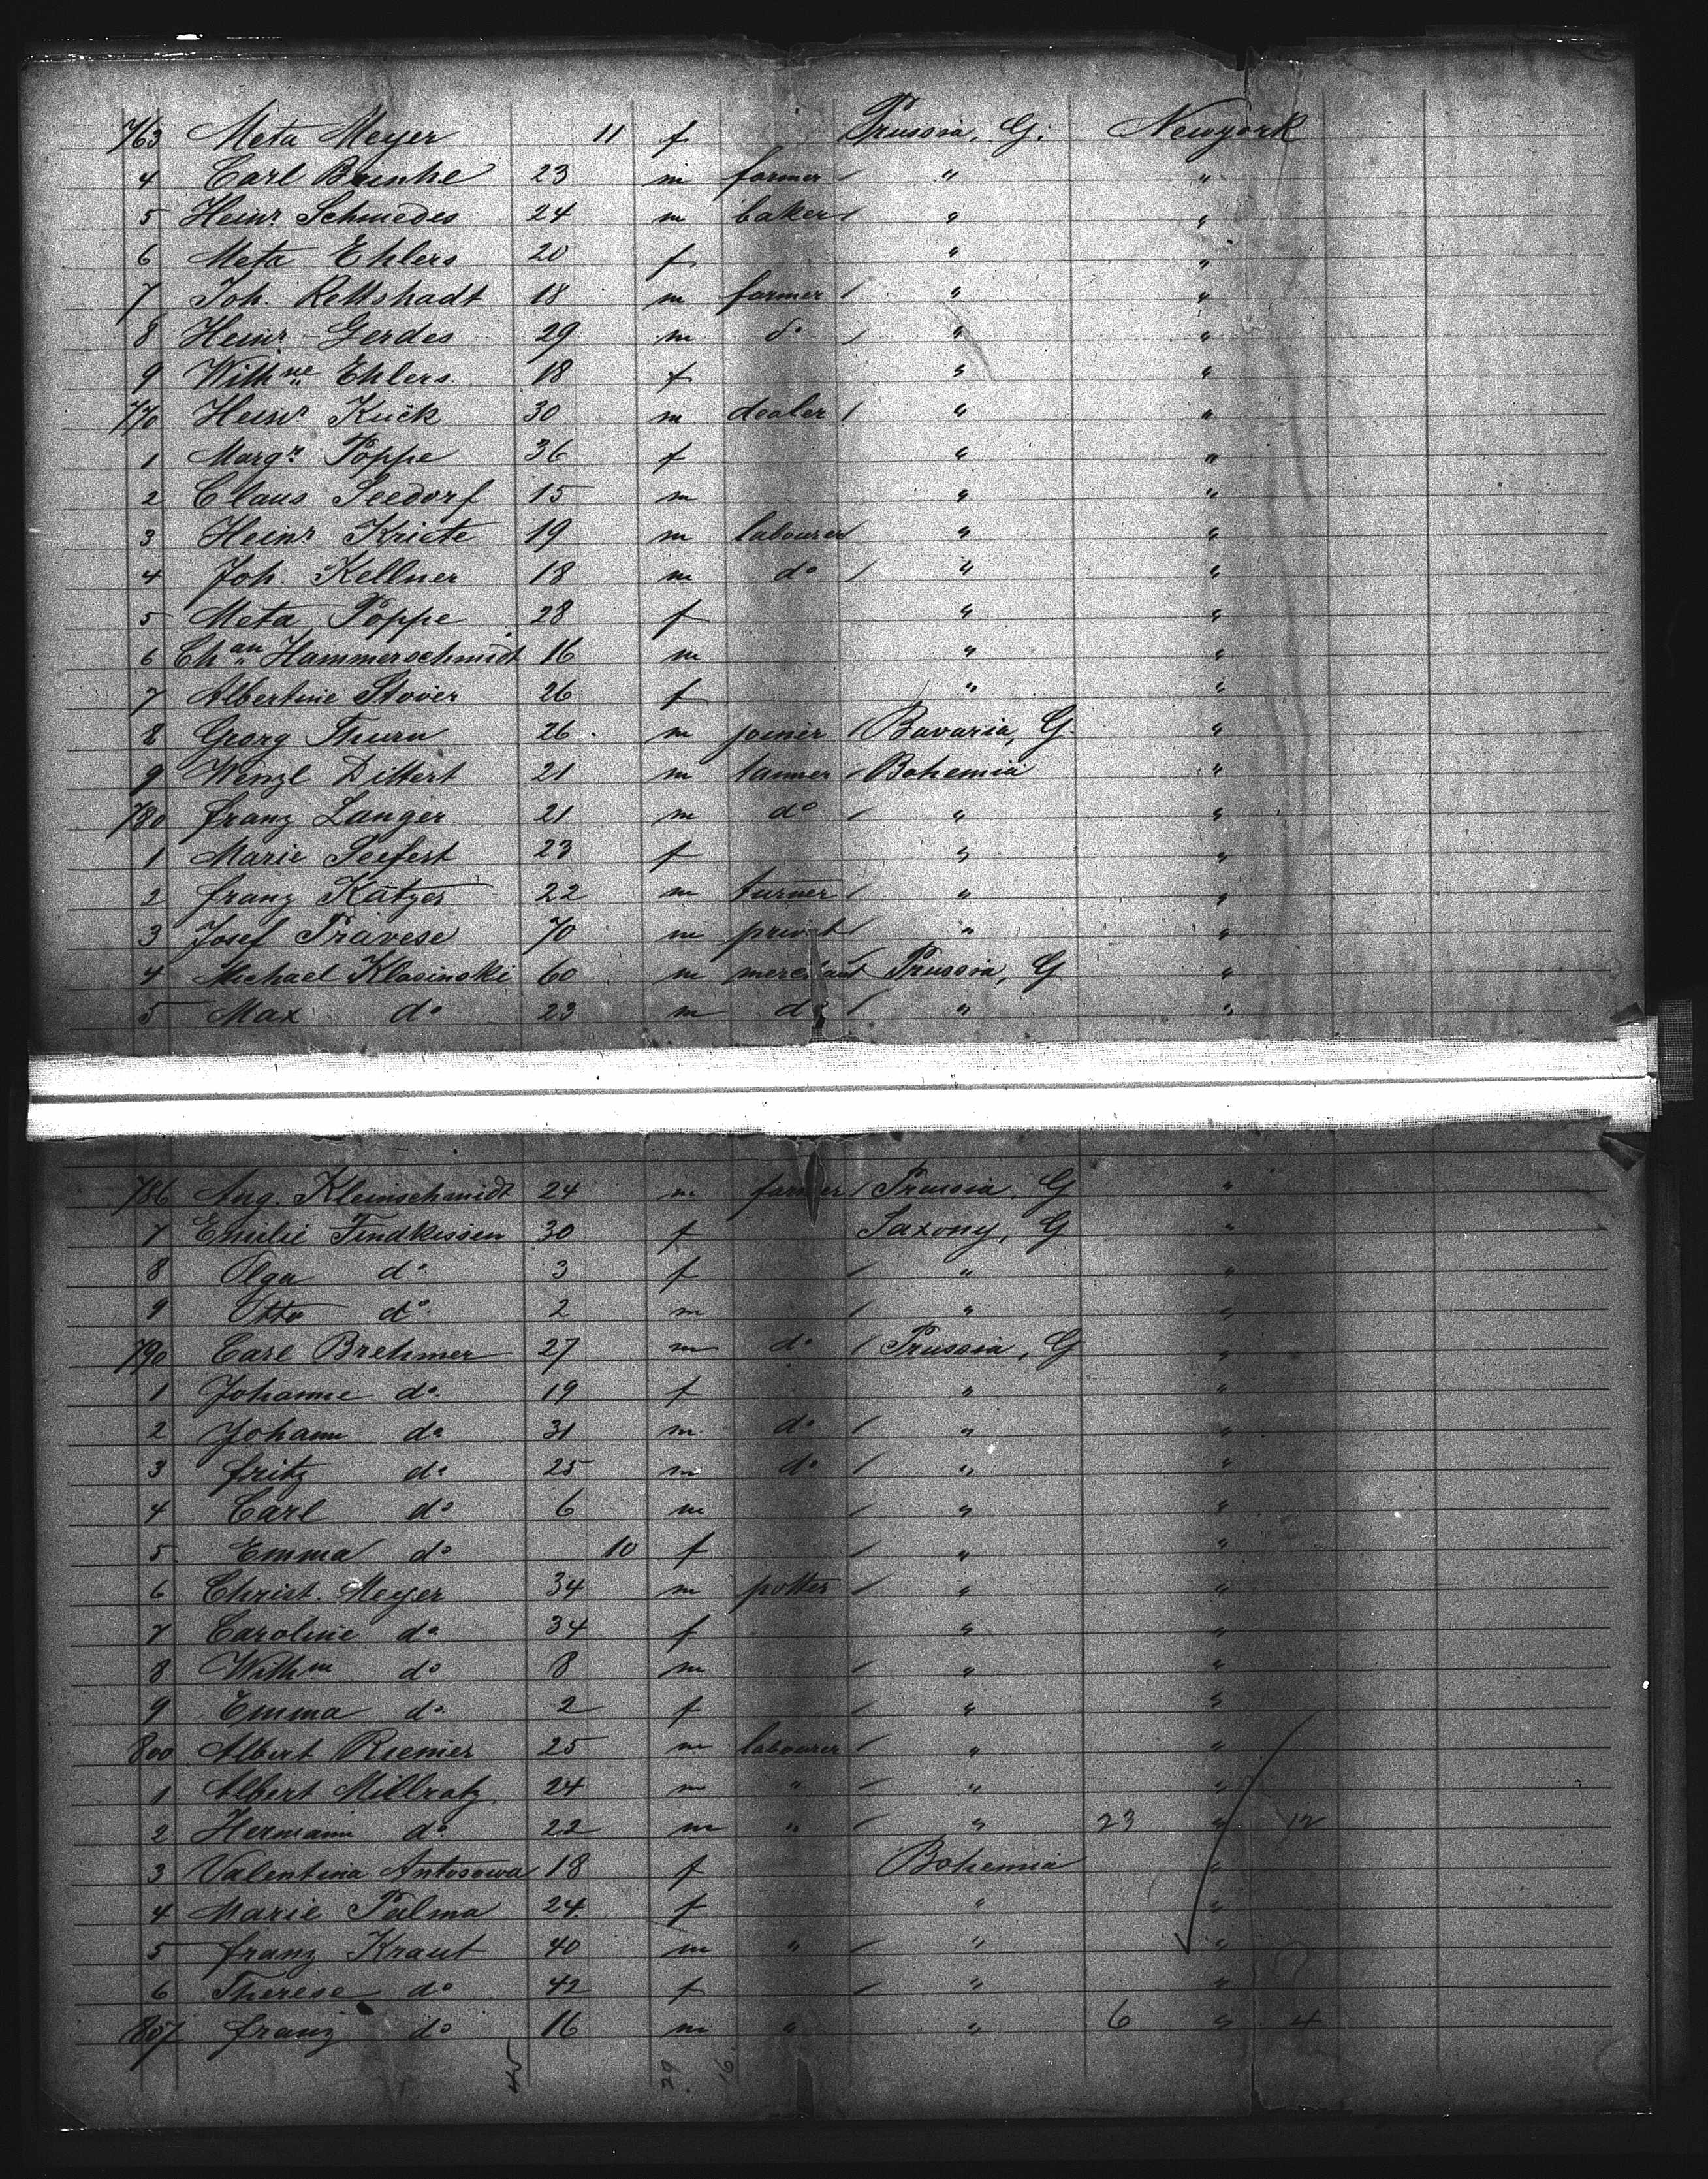 763 Meta Meyer 11 f Prussia, G. Newyork
4 Carl Brünhe 23 m farmer / " "
5 Heinr. Schmedes 24 m baker / " "
6 Meta Ehlers 20 f " "
7 Joh. Rettshadt 18 m farmer / " "
8 Heinr. Gerdes 29 m do / " "
9 Wilhne Ehlers 18 f " "
770 Heinr. Kück 30 m dealer / " "
1 Margr. Poppe 36 f " "
2 Claus Seedorf 15 m " "
3 Heinr Kriete 19 m labourer " "
4 Joh. Kellner 18 m do / " "
5 Meta Poppe 28 f " "
6 Chan Hammerschmidt 16 m " "
7 Albertine Stöver 26 f " "
8 Georg Thurn 26 m joiner / Bavaria, G. "
9 Wenzl Dittert 21 m tanner / Bohemia "
780 Franz Langer 21 m do / " "
1 Marie Seefert 23 f " "
2 Franz Katzer 22 m turner / " "
3 Josef Pravese 70 m privat / " "
4 Michael Klosinski 60 m merchant Prussia, G "
5 Max do 23 m do / " "
786 Aug. Kleinschmidt 24 m farmer / Prussia, G "
7 Emilie Findkissen 30 f Saxony, G "
8 Olga do 3 f / " "
9 Otto do 2 m / " "
790 Carl Brehmer 27 m do / Prussia, G "
1 Johanne do 19 f " "
2 Johann do 31 m do / " "
3 Fritz do 25 m do / " "
4 Carl do 6 m / " "
5 Emma do 10 f / " "
6 Christ. Meyer 34 m potter / " "
7 Caroline do 34 f " "
8 Wilhm do 8 m / " "
9 Emma do 2 f / " "
800 Albert Riemer 25 m labourer / " "
1 Albert Millratz 24 m " / " "
2 Hermann do 22 m " / " 23 " 12
3 Valentina Antosowa 18 f Bohemia "
4 Marie Palma 24 f " "
5 Franz Kraut 40 m " / " "
6 Therese do 42 f / " "
807 Franz do 16 m " " 6 " 4
29 16